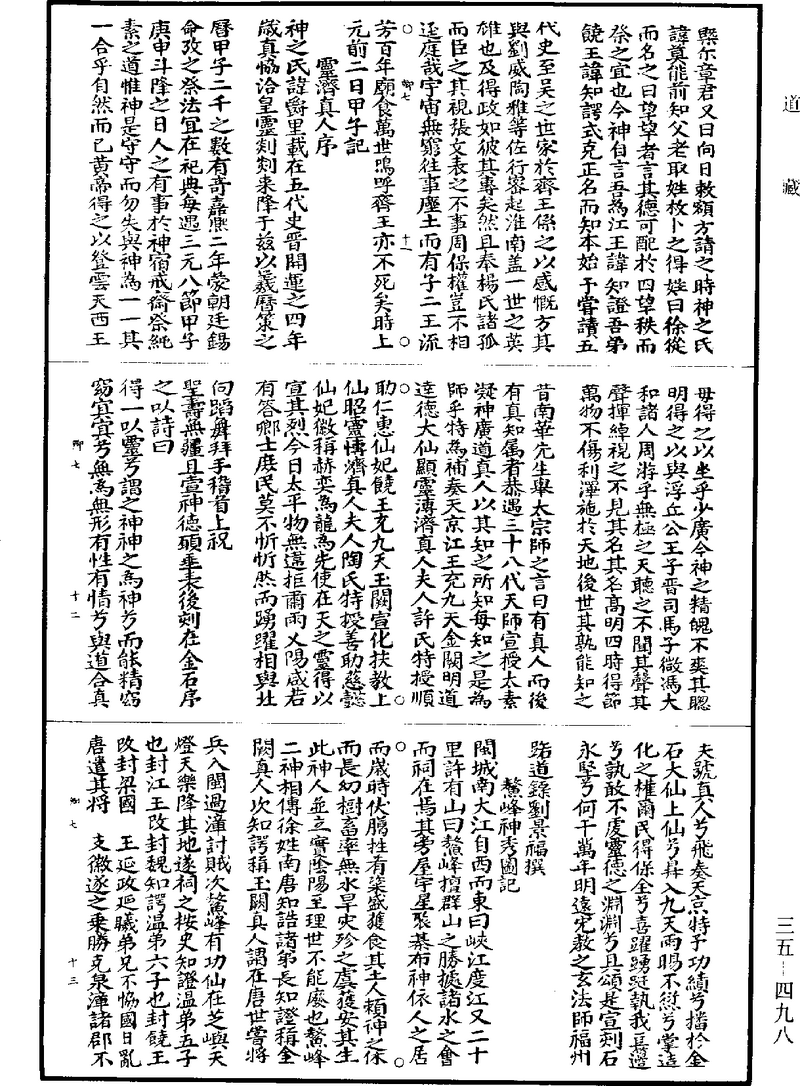 道藏
熙尒章君又曰向日敕額方請之時神之氏
諱莫能前知父老取姓枚卜之得姓曰徐從
而名之曰望望者言其德可配於四望秩而
祭之宜也今神自言吾為江王諱知證吾弟
饒王諱知諤式克正名而知本始予嘗讀五
代史至吳之世家於齊王係之以感慨方其
與劉威陶雅等佐行密起淮南盖一世之英
雄也及得政如彼其專矣然且奉楊氏諸孤
而臣之其視張文表之不事周保權豈不相
逕庭哉宇宙無窮往事塵土而有子二王流
卿七 十一
芳百年廟食萬世嗚呼齊王亦不死矣時上
元前二日甲子記
靈濟真人序
神之氏諱爵里載在五代史晋開運之四年
歲真恊洽皇靈剡剡来降于兹以羲曆策之
曆甲子二千之數有奇嘉熙二年蒙朝廷錫
命攷之祭法冝在祀典每遇三元八節甲子
庚申斗降之日人之有事於神宿戒齋祭純
素之道惟神是守守而勿失與神為一一其
一合乎自然而已黄帝得之以登雲天西王
母得之以坐乎少廣今神之精魄不爽其聰
明得之以與浮丘公王子晋司馬子微馮大
和諸人周游乎無極之天聽之不聞其聲其
聲揮綽視之不見其名其名高明四時得節
萬物不傷利澤施於天地後世其孰能知之
昔南華先生舉太宗師之言曰有真人而後
有真知属者恭遇三十八代天師宣授太素
凝神廣道真人以其知之所知每知之是為
師乎特為補奏天京江王充九天金闕明道
達德大仙顯靈溥濟真人夫人許氏特授順
助仁惠仙妃饒王充九天玉闕宣化扶教上
仙昭靈博濟真人夫人陶氏特授善助慈懿
仙妃徽稱赫奕為龍為光使在天之靈得以
宣其烈今日太平物無違拒肅雨乂陽咸若
有答鄉士庶民莫不忻忻然而踴躍相與北
向蹈舞拜手稽首上祝
聖壽無疆且宣神德頭垂表後刻在金石序
之以詩曰
得一以靈兮謂之神神之為神兮而能精窈
窈冥冥兮無為無形有性有情兮與道合真
卿七 十二
夫號真人兮飛奏天京特予功績兮播於金
石大仙上仙兮昇入九天雨暘不愆兮掌造
化之權爾民得保全兮喜躍踴䟫執我豆邊
兮孰敢不虔靈德之淵淵兮且頌是宣刻石
永堅兮何千萬年明遠宏教之玄法師福州
路道錄劉景福撰
鰲峰神秀圖記
閩城南大江自西而東曰峽江度江又二十
里許有山曰鰲峰擅群山之勝據諸水之會
而祠在焉其旁屋宇星聚棊布神依人之居
而歲時伏臘牲肴粢盛獲食其土人頼神之休
而長幼樹畜率無水旱灾沴之虞獲安其生
此神人並立實陰陽至理世不能廢也鰲峰
二神相傳徐姓南唐知誥諸弟長知證稱金
闕真人次知諤稱玉闕真人謂在唐世嘗將
兵入閩過漳討賊次鰲峰有功仙在芝嶼天
燈天樂降其地遂祠之按史知證温第五子
也封江王改封魏知諤温弟六子也封饒王
改封梁國 王延政延曦弟兄不恊國日亂
唐遣其将 支徽遂之乗勝克泉漳諸郡不
卿七 十三
三五—四九八